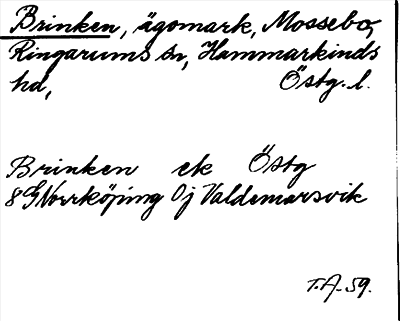 Brinken, ägomark, Mossebo,
Ringarums sn, Hammarkinds
hd, Östg. l.
Brinken ek Östg
8G Norrköping 0j Valdemarsvik
T.A. 59.